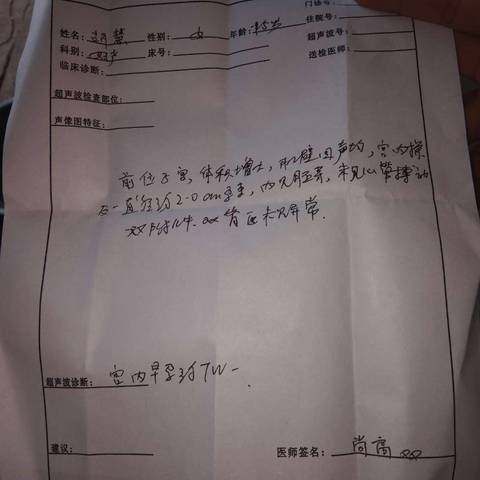 门诊号:
姓名: 慧 性别: 女 年龄: 住院号:
科别: 妇产 床号: 超声波号:
临床诊断: 送检医师:
超声波检查部位:
声像图特征:
前位子宫, 体积增大, 肌壁回声均, 宫内探
及一直径约2.0cm孕囊, 内见胚芽, 未见心管搏动
双附件 区未见异常.
超声波诊断: 宫内早孕约7W
建议: 医师签名: 尚高